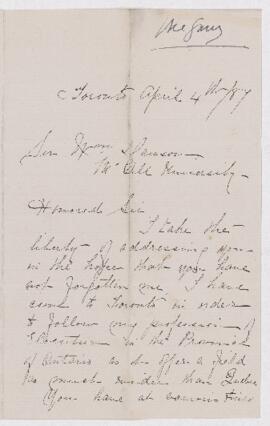 Toronto April 4th
Sir Wm Dawson
McGill University
Honored Sir
I take the
liberty of addressing you
in the hope that you have
not forgotten me I have
come to Toronto in order
to follow my profession of
Elocution in the Province
of Ontario as it offers a field
so much wider than Quebec
You have at various times